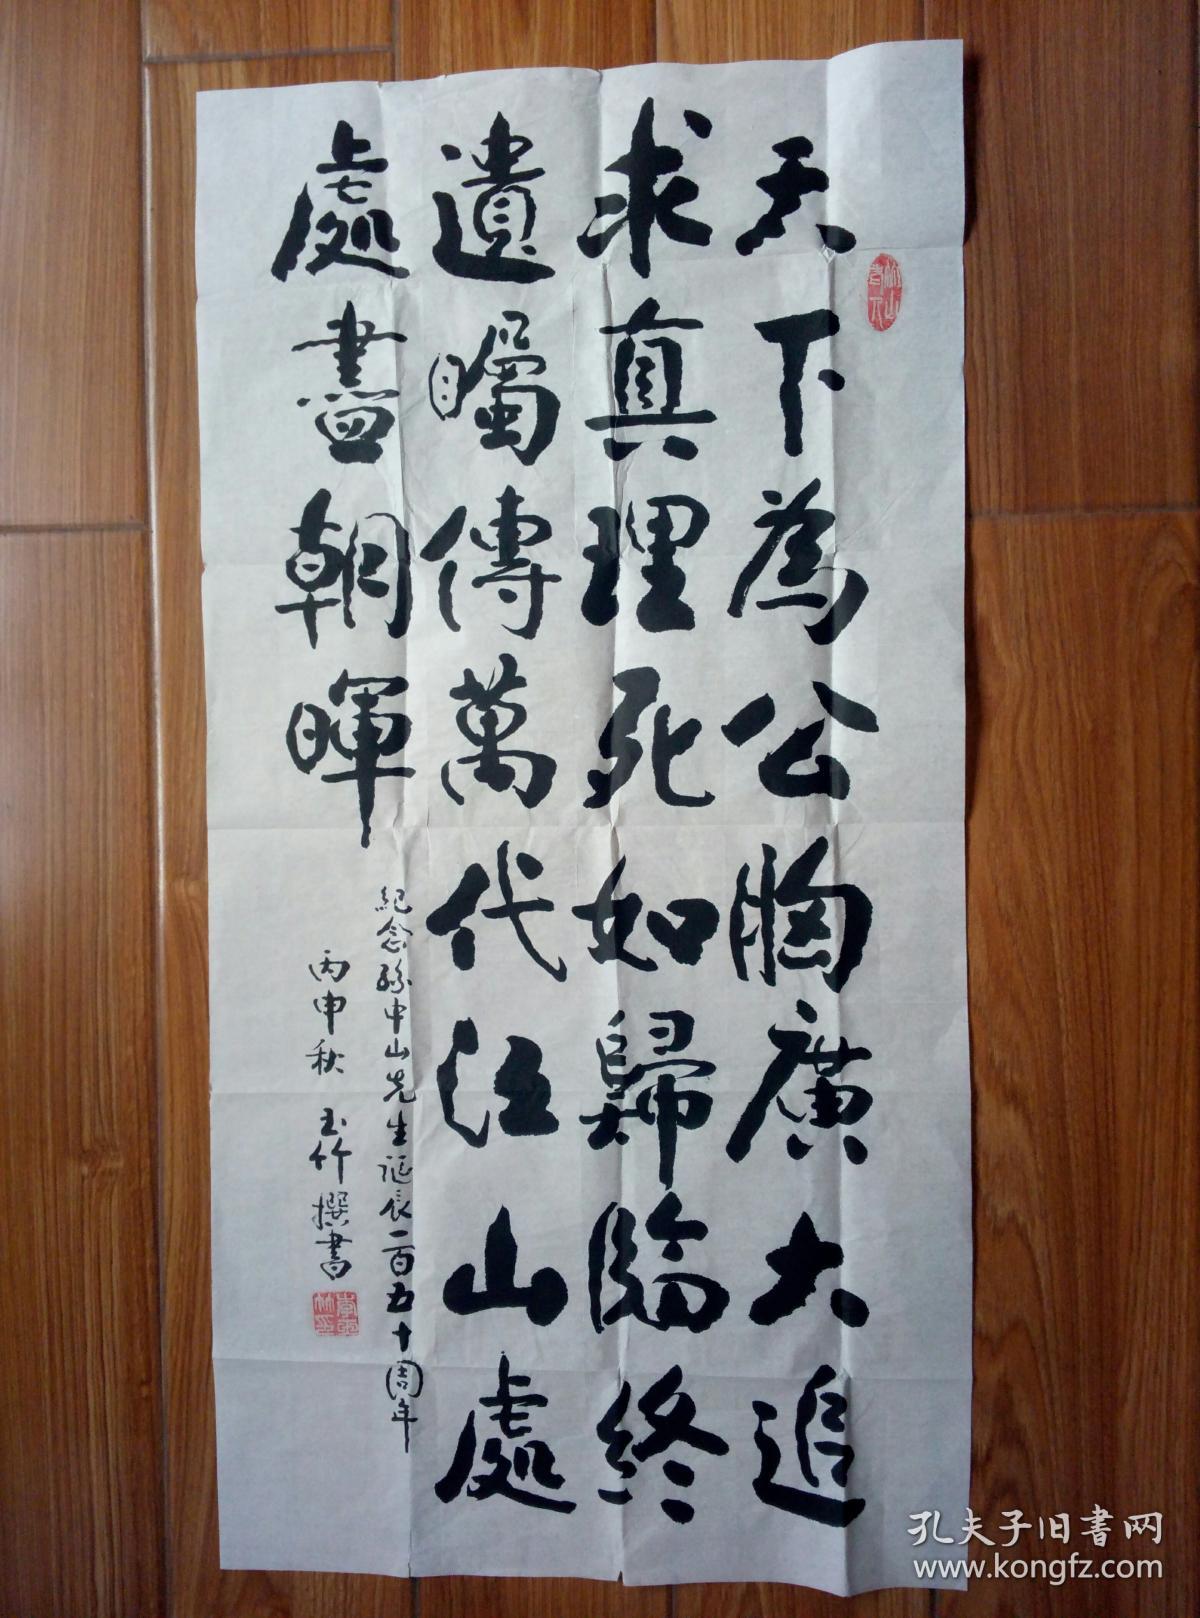 天下為公胸廣大追
求真理死如歸臨終
遺矚傳萬代江山處
處盡朝暉
紀念孫中山先生誕辰一百五十周年
丙申秋 玉竹撰書
孔夫子旧書网
www.kongfz.com